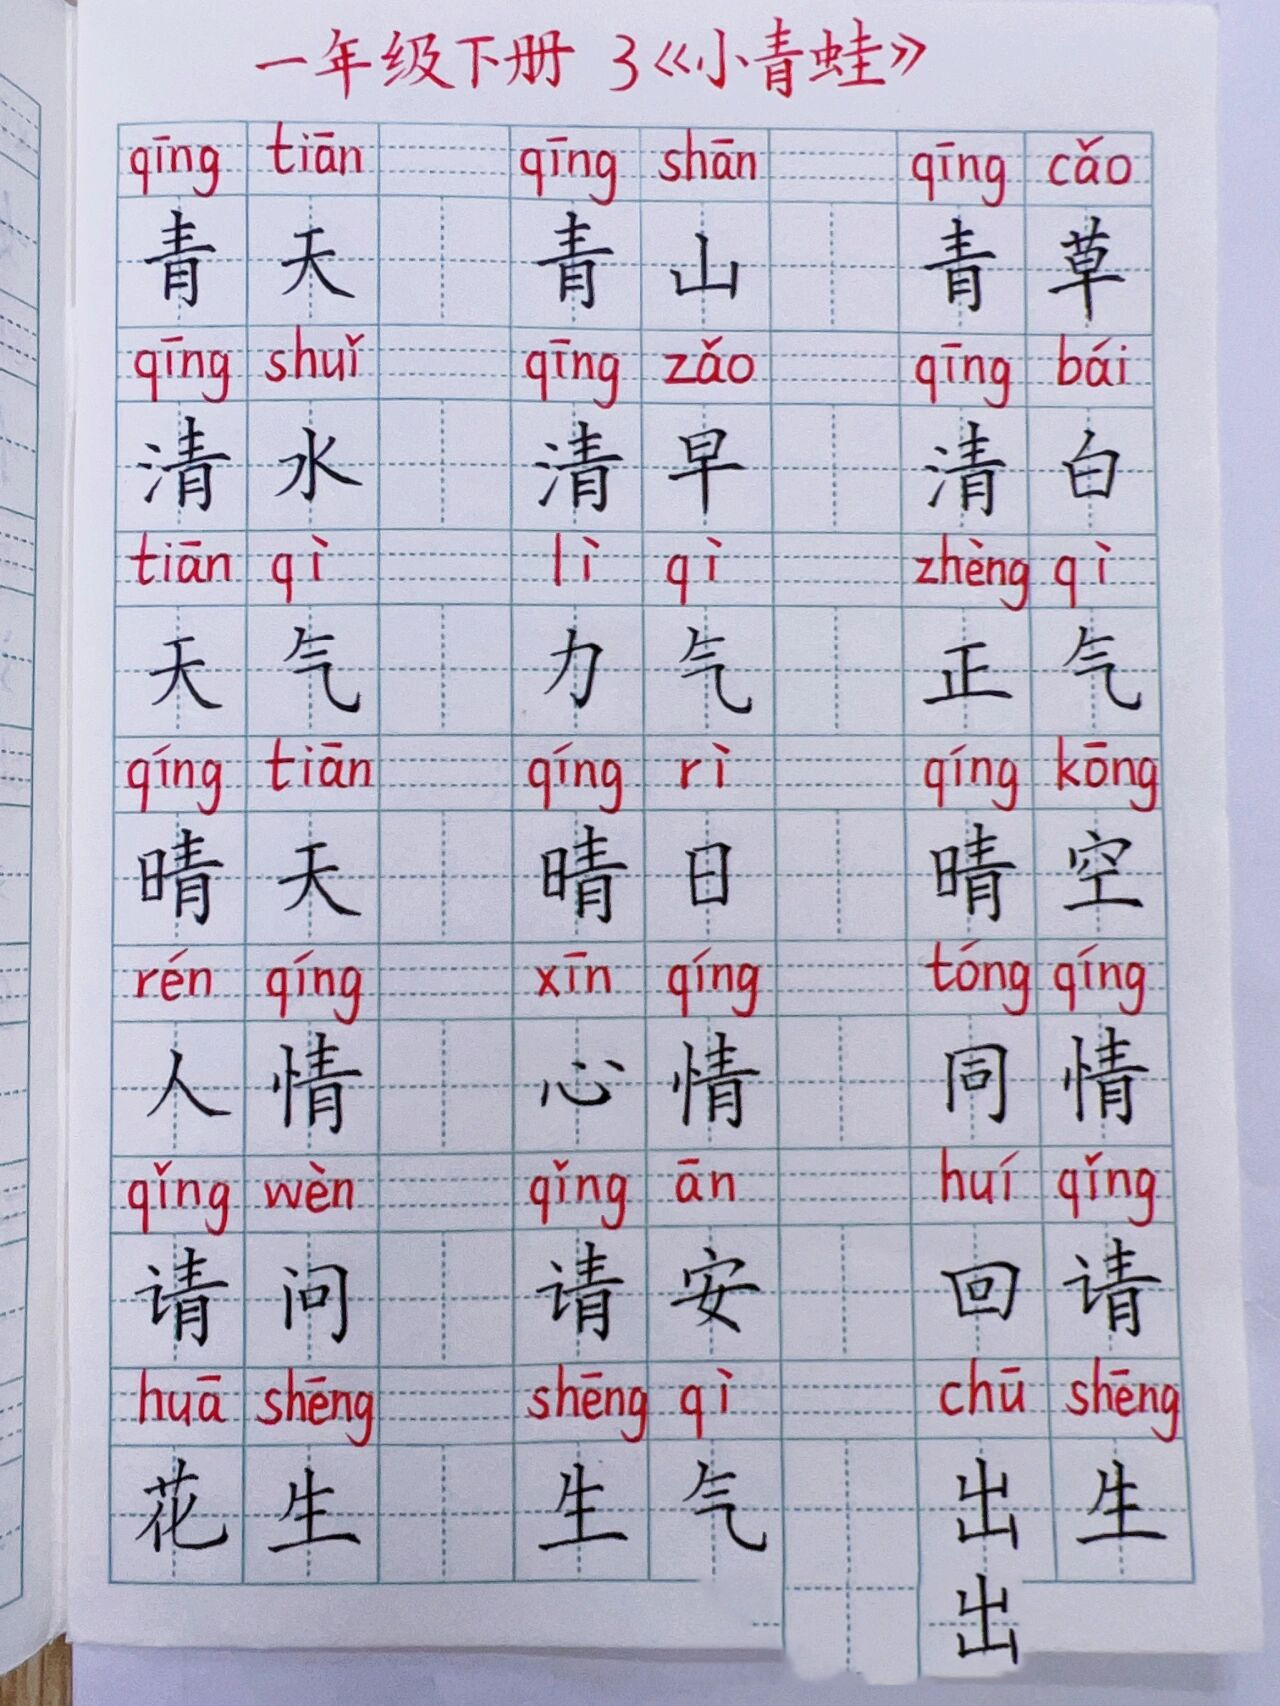 一年级下册 3《小青蛙》
qīng tiān qīng shān qīng cǎo
青天 青山 青草
qīng shuǐ qīng zǎo qīng bái
清水 清早 清白
tiān qì lì qì zhèng qì
天气 力气 正气
qíng tiān qíng rì qíng kōng
晴天 晴日 晴空
rén qíng xīn qíng tóng qíng
人情 心情 同情
qǐng wèn qǐng ān huí qǐng
请问 请安 回请
huā shēng shēng qì chū shēng
花生 生气 出生
出